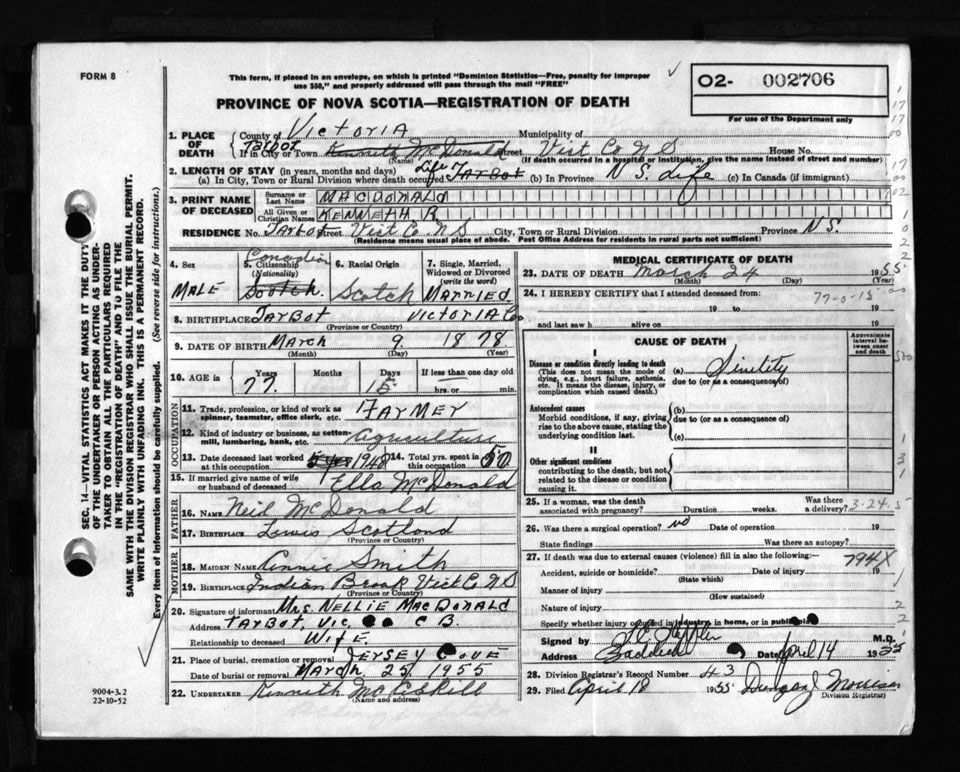 FORM 8
This form, if placed in an envelope, on which is printed "Dominion Statistics—Free, penalty for improper
use $50," and properly addressed will pass through the mail "FREE"
O2- 002706
For use of the Department only
PROVINCE OF NOVA SCOTIA—REGISTRATION OF DEATH
SEC. 14—VITAL STATISTICS ACT MAKES IT THE DUTY
OF THE UNDERTAKER OR PERSON ACTING AS UNDER-
TAKER TO OBTAIN ALL THE PARTICULARS REQUIRED
IN THE "REGISTRATION OF DEATH" AND TO FILE THE
SAME WITH THE DIVISION REGISTRAR WHO SHALL ISSUE THE BURIAL PERMIT.
WRITE PLAINLY WITH UNFADING INK. THIS IS A PERMANENT RECORD.
Every item of information should be carefully supplied. (See reverse side for instructions.)
1. PLACE OF DEATH County of Victoria Municipality of
Tarbot
If in City or Town Kenneth McDonald Street Vict Co N S House No.
(Name) (If death occurred in a hospital or institution, give the name instead of street and number)
2. LENGTH OF STAY (in years, months and days)
(a) In City, Town or Rural Division where death occurred Life Tarbot (b) In Province N S. Life (c) In Canada (if immigrant)
3. PRINT NAME OF DECEASED Surname or Last Name MACDONALD
All Given or Christian Names KENNETH R
RESIDENCE No. Tarbot Street Vict Co. N S City, Town or Rural Division Province N S.
(Residence means usual place of abode. Post Office Address for residents in rural parts not sufficient)
4. Sex MALE
5. Citizenship (Nationality) Canadian Scotch.
6. Racial Origin Scotch
7. Single, Married, Widowed or Divorced (write the word) MARRIED
8. BIRTHPLACE TARBOT VICTORIA Co
(Province or Country)
9. DATE OF BIRTH March 9 1878
(Month) (Day) (Year)
10. AGE in Years 77. Months Days 15 If less than one day old hrs. or min.
OCCUPATION
11. Trade, profession, or kind of work as spinner, teamster, office clerk, etc. FARMER
12. Kind of industry or business, as cotton-mill, lumbering, bank, etc. Agriculture
13. Date deceased last worked at this occupation 1948
14. Total yrs. spent in this occupation 50
15. If married give name of wife or husband of deceased Ella McDonald
FATHER
16. NAME Neil McDonald
17. BIRTHPLACE Lewis Scotland
(Province or Country)
MOTHER
18. MAIDEN NAME Annie Smith
19. BIRTHPLACE Indian Brook Vict C. N S
(Province or Country)
20. Signature of informant Mrs. NELLIE MACDONALD
Address TARBOT, VIC, C B.
Relationship to deceased WIFE
21. Place of burial, cremation or removal JERSEY COVE
Date of burial or removal MARCH 25, 1955
22. UNDERTAKER Kenneth McAskill
(Name and address)
9004-3.2
22-10-52
MEDICAL CERTIFICATE OF DEATH
23. DATE OF DEATH March 24 1955
(Month) (Day) (Year)
24. I HEREBY CERTIFY that I attended deceased from: 77-0-15
19 to 19
and last saw h alive on 19
CAUSE OF DEATH
Approximate interval between onset and death
I
Disease or condition directly leading to death
(This does not mean the mode of dying, e.g., heart failure, asthenia, etc. It means the disease, injury, or complication which caused death.)
(a) Senility
due to (or as a consequence of)
Antecedent causes
Morbid conditions, if any, giving rise to the above cause, stating the underlying condition last.
(b)
due to (or as a consequence of)
(c)
II
Other significant conditions
contributing to the death, but not related to the disease or condition causing it.
25. If a woman, was the death associated with pregnancy? Duration weeks. Was there a delivery? 3-24-5
26. Was there a surgical operation? no Date of operation 19
State findings Was there an autopsy?
27. If death was due to external causes (violence) fill in also the following:— 794X
Accident, suicide or homicide? Date of injury 19
(State which)
Manner of injury
(How sustained)
Nature of injury
Specify whether injury occurred in industry, in home, or in public
Signed by M.D.
Address Baddeck Date April 14 1955
28. Division Registrar's Record Number 43
29. Filed April 18 1955 Duncan J Morrison
Division Registrar)